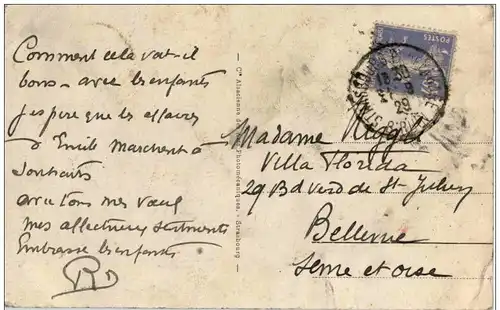 Comment cela vat-il
bons - avec les enfants
j'espère que les affaires
d'Emile marchent à
souhaits
avec tous mes vœux
mes affectueux sentiments
Embrasse les enfants
R
Cie Alsacienne
Photomécaniques - Strasbourg
POSTES
29
Madame
Villa Florida
29 Bd verd de St-
Bellevue
Seine et oise